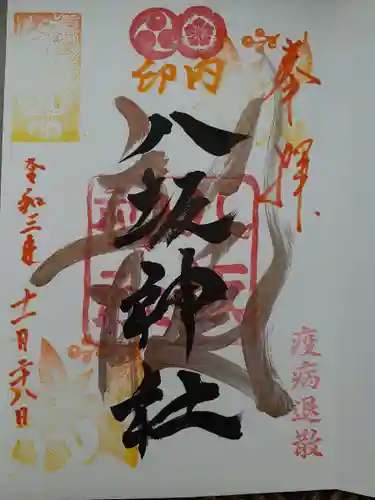 奉拝
内印
八坂神社
疫病退散
令和三年
十一月二十八日